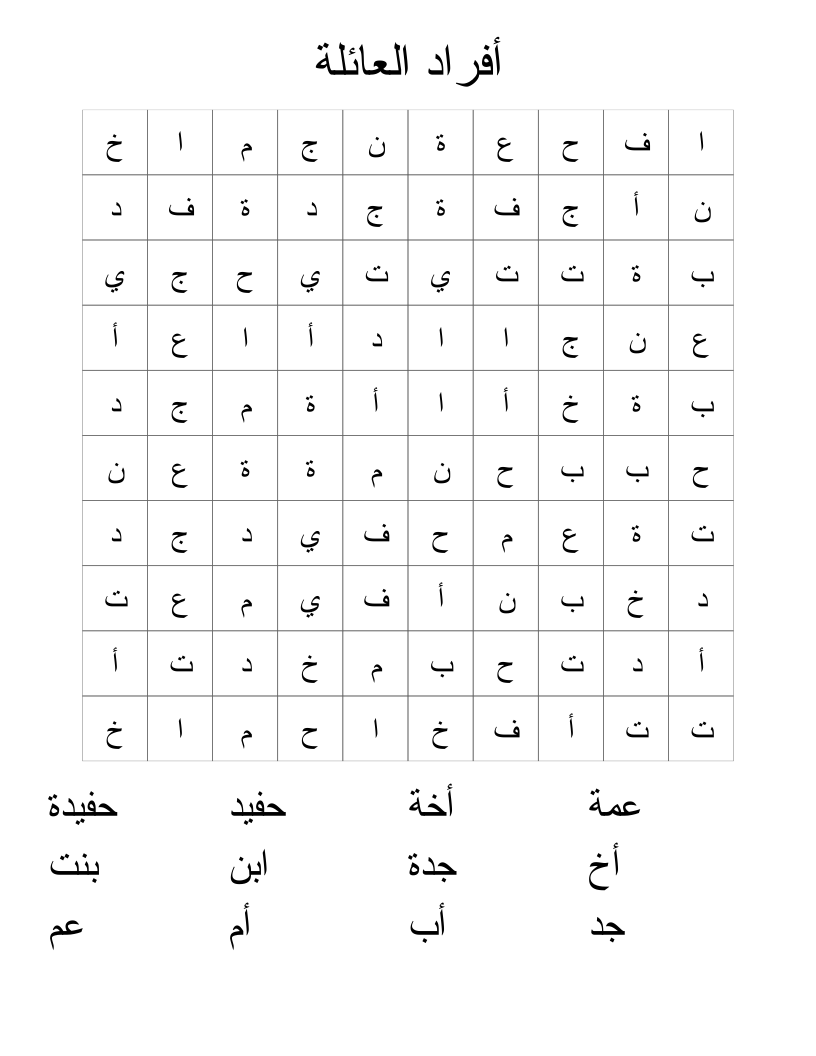 أفراد العائلة
ا ف ح ع ة ن ج م ا خ
ن أ ج ف ة ج د ة ف د
ب ة ت ت ي ت ي ح ج ي
ع ن ج ا ا د أ ا ع أ
ب ة خ أ ا أ ة م ج د
ح ب ب ح ن م ة ة ع ن
ت ة ع م ح ف ي د ج د
د خ ب ن أ ف ي م ع ت
أ د ت ح ب م خ د ت أ
ت ت أ ف خ ا ح م ا خ
عمة أخة حفيد حفيدة
أخ جدة ابن بنت
جد أب أم عم